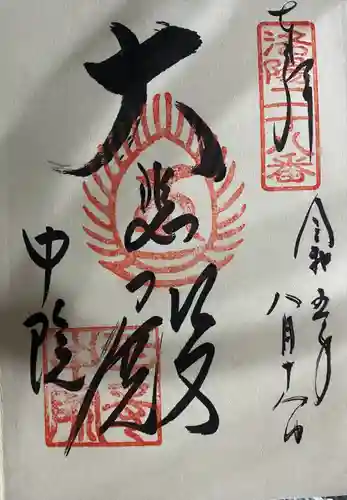 奉拝
洛陽二八番
令和五年
八月十八日
大悲殿
中院